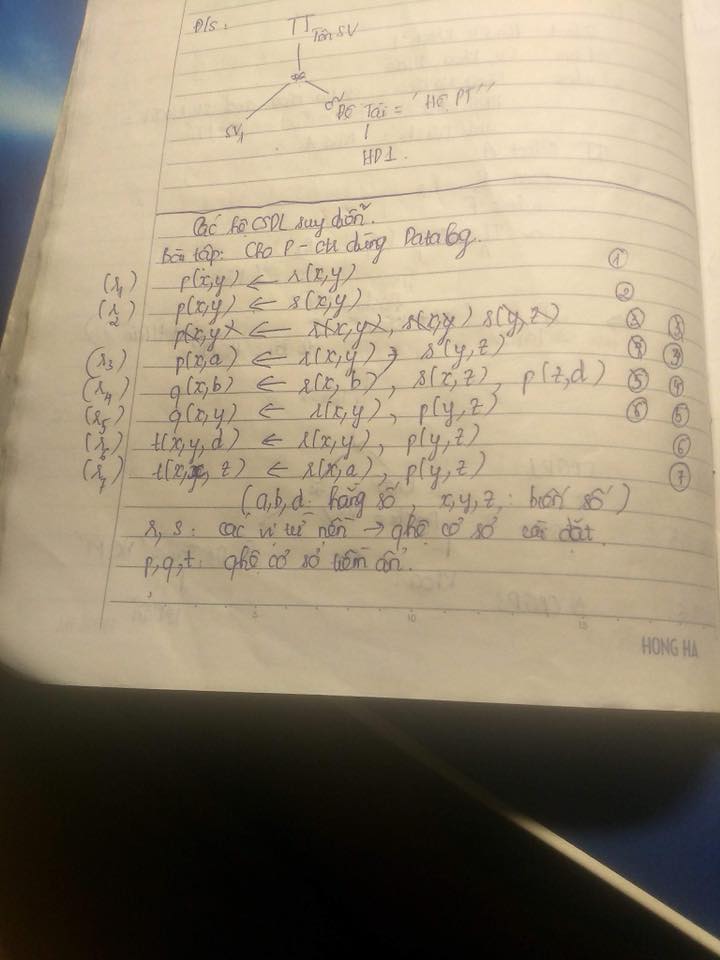 Đ/S:
Π
Tên SV
∞
σ Đề Tài = 'Hệ PT'
SV1
HD1.
Các hệ CSDL suy diễn.
Bài tập: Cho P - ctr dùng Datalog.
(r1) p(x,y) ← r(x,y) ①
(r2) p(x,y) ← s(x,y) ②
p(x,y) ← r(x,y), s(x,y) s(y,z) ③
(r3) p(x,a) ← r(x,y), s(y,z) ③
(r4) q(x,b) ← r(x,b), s(x,z), p(z,d) ⑤ ④
(r5) q(x,y) ← r(x,y), p(y,z) ⑥ ⑤
(r6) t(x,y,d) ← r(x,y), p(y,z) ⑥
(r7) t(x,y,z) ← r(x,a), p(y,z) ⑦
(a,b,d: hằng số, x,y,z: biến số)
r, s: các vị từ nền → qhệ cơ sở cài đặt.
p,q,t: qhệ cơ sở tiềm ẩn.
5 10 15
HONG HA